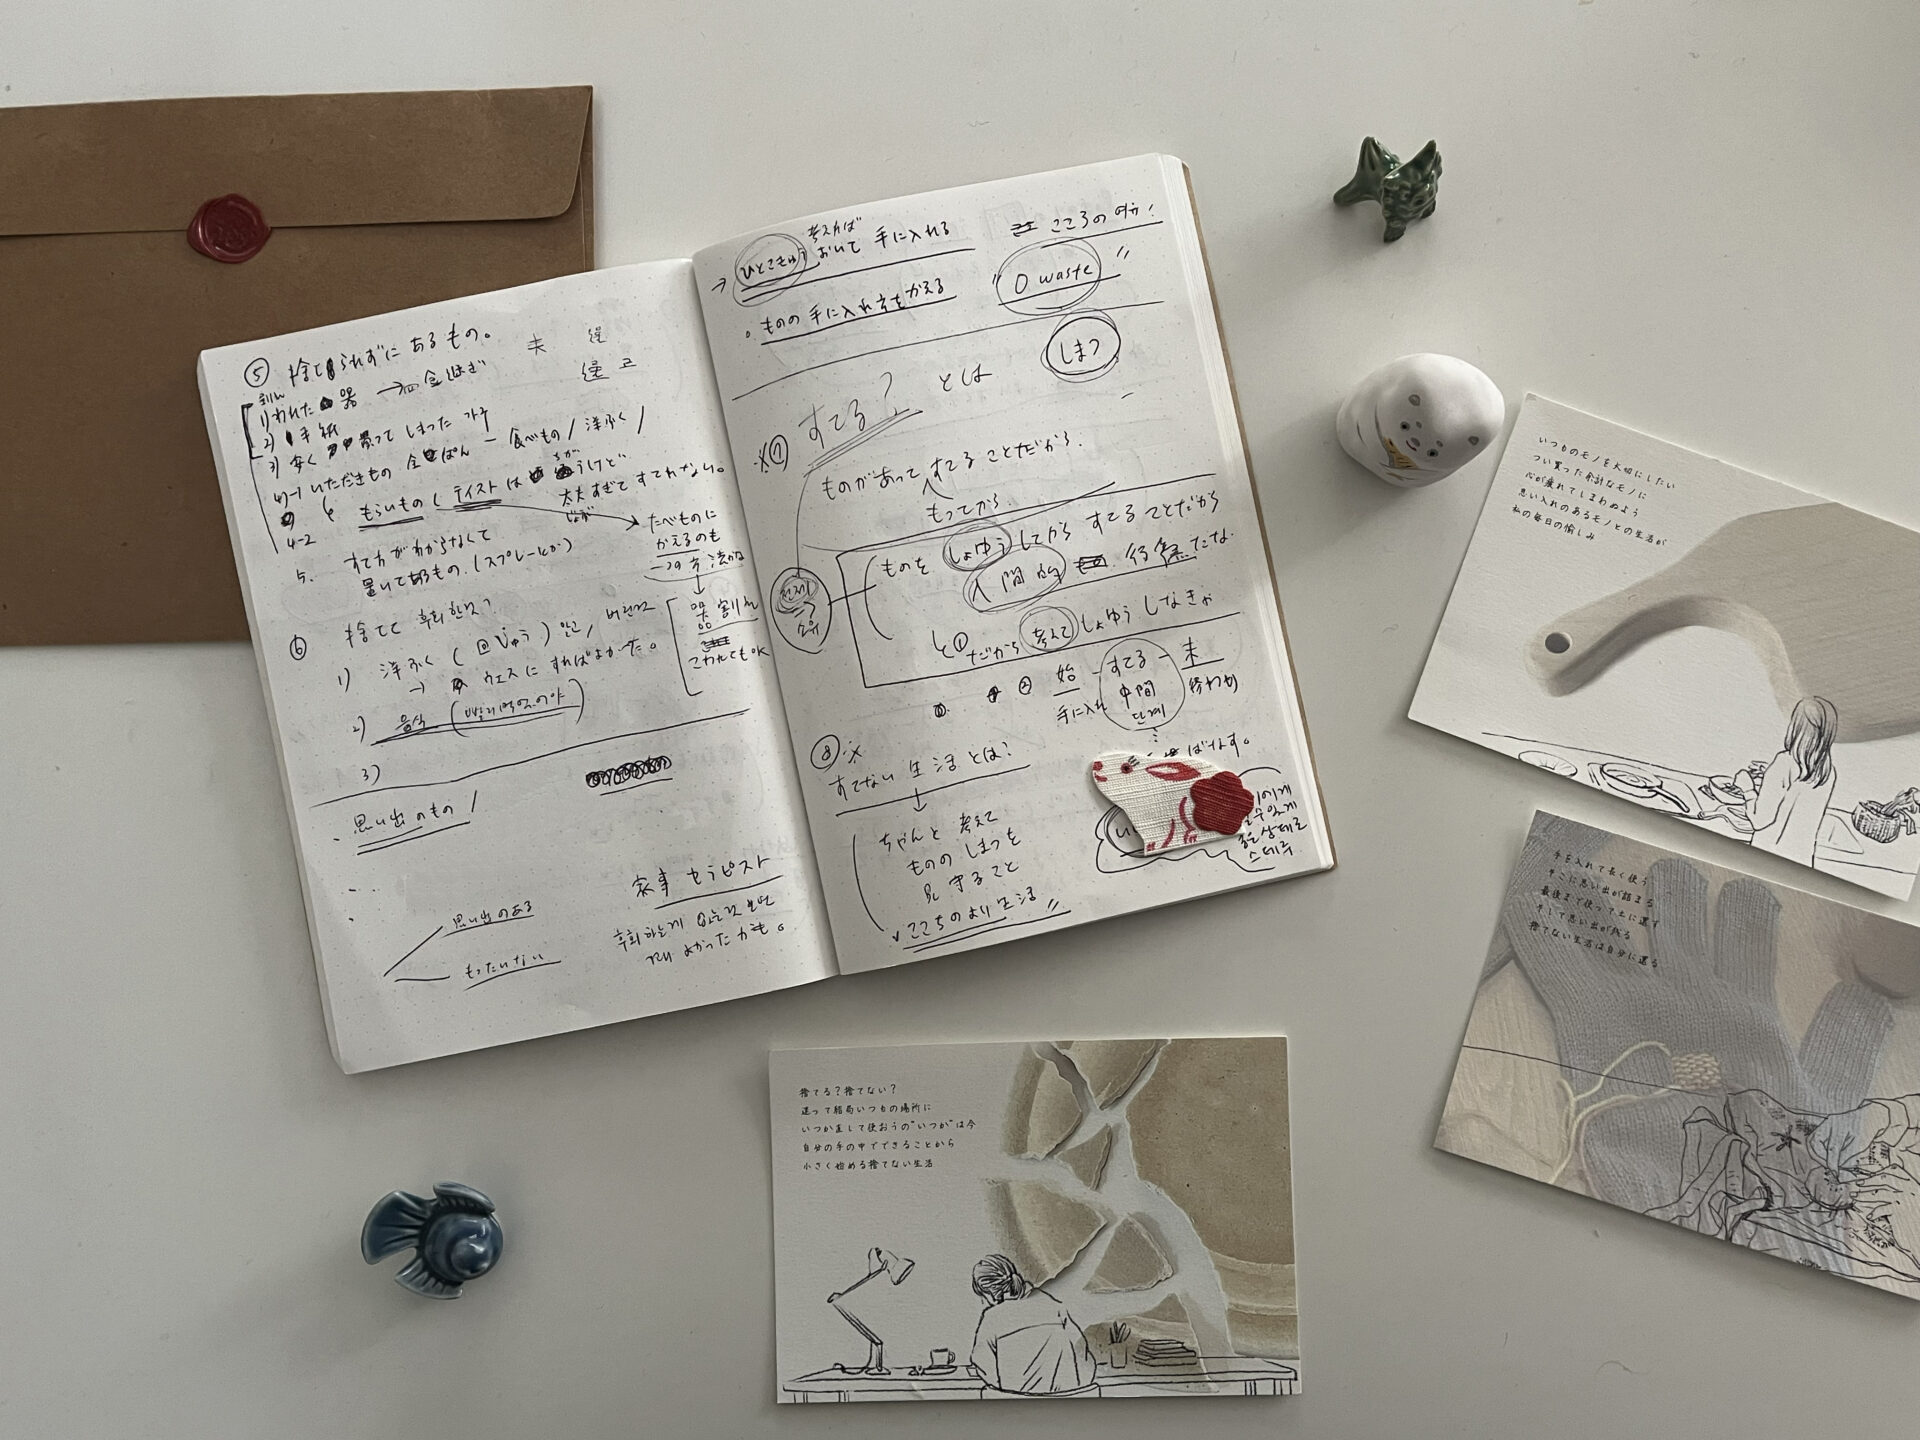 ⑤ 捨てられずにあるもの。
1) われた器 → 金継ぎ
2) 手紙
3) 安く買ってしまった 가구
4)-1 いただきもの 全ぱん - 食べもの / 洋ふく /
4-2 もらいもの ( テイストは ちがうけど
大丈夫すぎてすてれない。
じょぶ
たべものに
かえるのも
一つの方法かな
↓
器 割れ
こわれてもOK
5. すて方がわからなくて
置いてあるもの。(スプレーとか)
⑥ 捨てて 후회한것?
1) 洋ふく
→ ウエスにすればよかった。
2) 음식 (빨리먹었어야)
3)
・思い出のもの /
思い出のある
もったいない
家事セラピスト
후회하는게 있는것 보면
よかったかも。
→ ひとこきゅう おいて 手に入れる
考えれば
こころの
・ものの手に入れ方をかえる
" 0 waste "
しまつ
すてる? とは
※⑦
ものがあって すてる ことだから.
もってから.
ものを しょゆう してから すてる ことだから
人間的 行為だな
소유
と① だから 考えて しょゆう しなきゃ
② 始 - すてる - 末
手に入れ 中間 終わり
단계
⑧※
すてない 生活 とは?
↓
ちゃんと 考えて
ものの しまつを
見守ること
✓ こころのより 生活 〃
좋은 상태로
いつものモノを大切にしたい
つい買った余計なモノに
心が疲れてしまわぬよう
思い入れのあるモノとの生活が
私の毎日の愉しみ
手を入れて長く使う
そこに思い出が詰まる
最後まで使って土に還す
そして思い出が残る
捨てない生活は自分に還る
捨てる?捨てない?
迷って結局いつもの場所に
いつか直して使おうの"いつか"は今
自分の手の中でできることから
小さく始める捨てない生活